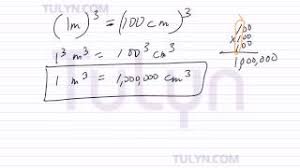 TULYN.COM
(1m)³ = (100cm)³
1³ m³ = 100³ cm³
1 m³ = 1,000,000 cm³
100
x100
100
1,000,000
Tulyn
TULYN.COM